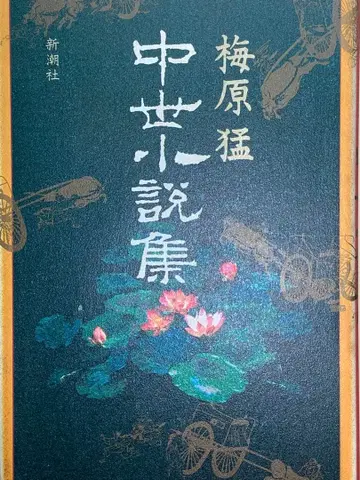 梅原猛
中世小説集
新潮社